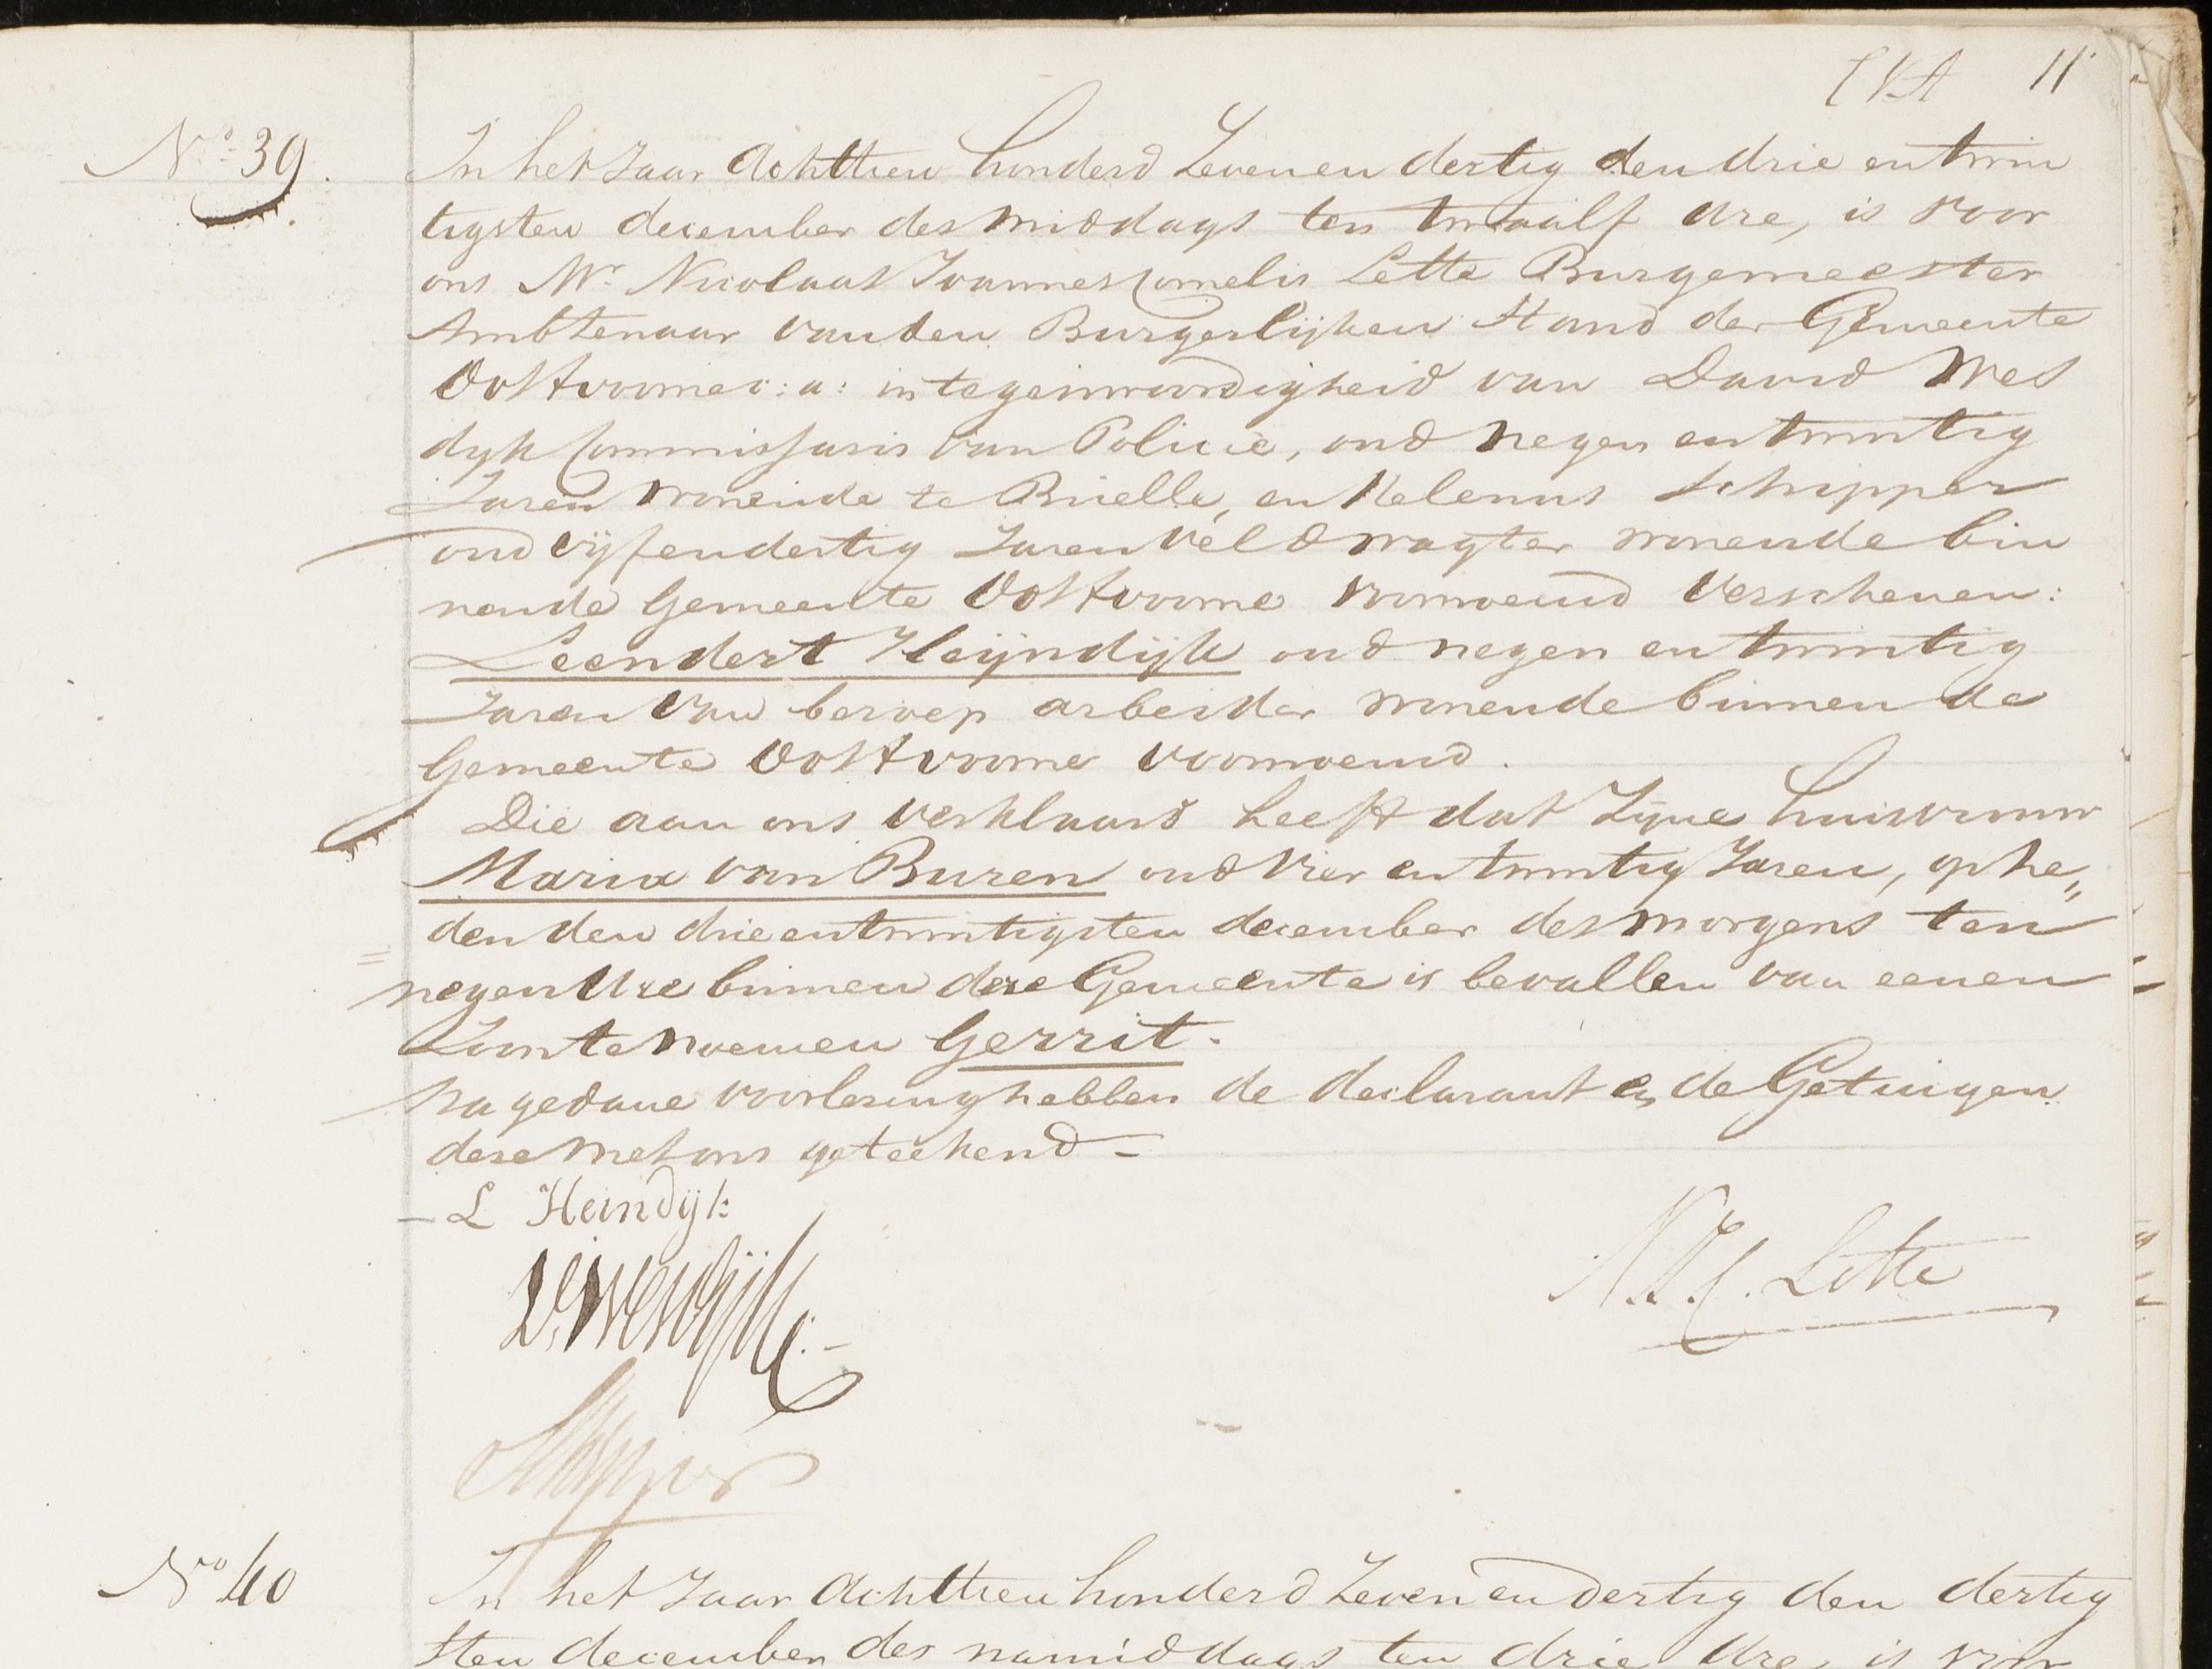 11
No. 39.
In het Jaar Achttien honderd Zeven en dertig den drie en twin
tigsten december des middags ten twaalf Ure, is voor
ons Mr. Nicolaas Joannes Cornelis Lette Burgemeester
Ambtenaar van den Burgerlijken Stand der Gemeente
Oostvoorne c: a: in tegenwoordigheid van David Wes
dyk Commissaris van Policie, oud negen en twintig
Jaren wonende te Brielle, en Helenus Schipper
oud vijf en dertig Jaren Veldwagter wonende bin
nen de Gemeente Oostvoorne voornoemd Verschenen:
Leendert Heijndijk oud negen en twintig
Jaren Van beroep arbeider wonende binnen de
Gemeente Oostvoorne voornoemd.
Die aan ons Verklaard heeft dat Zijne huisvrouw
Maria van Buren oud Vier en twintig Jaren, op he„
den den drie en twintigsten december des morgens ten
negen Ure binnen deze Gemeente is bevallen van eenen
Zoon te noemen Gerrit.
Na gedane voorlezing hebben de declarant en de Getuigen
deze met ons geteekend –
L Heindijk
N. J. C. Lette
D. Wesdijk
Schipper
No 40
In het Jaar Achttien honderd Zeven en dertig den dertig
sten december des namiddags ten drie Ure is voor